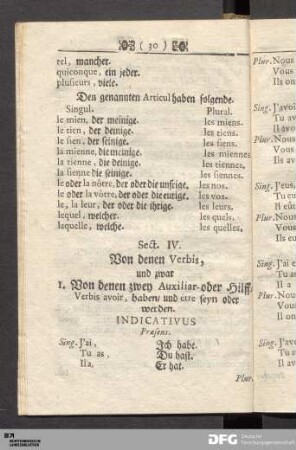 ( 30 )
tel, mancher.
quiconque, ein jeder.
plusieurs, viele.
Den genannten Articul haben folgende.
Singul. Plural.
le mien, der meinige. les miens.
le tien, der deinige. les tiens.
le sien, der seinige. les siens.
la mienne, die meinige. les miennes
la tienne, die deinige. les tiennes,
la sienne die seinige. les siennes.
le oder la nôtre, der oder die unsrige. les nos.
le oder la vôtre, der oder die eurige. les vos.
le, la leur, der oder die ihrige. les leurs.
lequel, welcher. les quels.
laquelle, welche. les quelles,
Sect. IV.
Von denen Verbis,
und zwar
1. Von denen zwey Auxiliar- oder Hilff-
Verbis avoir, haben und être seyn oder
werden.
INDICATIVUS
Præsens.
Sing. J'ai, Ich habe.
Tu as, Du hast.
Il a, Er hat.
Plur.
Plur. Nous
Vous
Ils on
Sing. J'avoi
Tu av
Il avo
Plur. Nous
Vous
Ils av
Sing. J'eus,
Tu eu
Il eut
Plur. Nous
Vous
Ils eu
Sing. J'ai e
Tu as
Il a e
Plur. Nous
Vous
Ils ont
Sing. J'avoi
Tu av
Il avo
Plur. Nous
Vous
Ils av
DFG Deutsche
Forschungsgemeinschaft